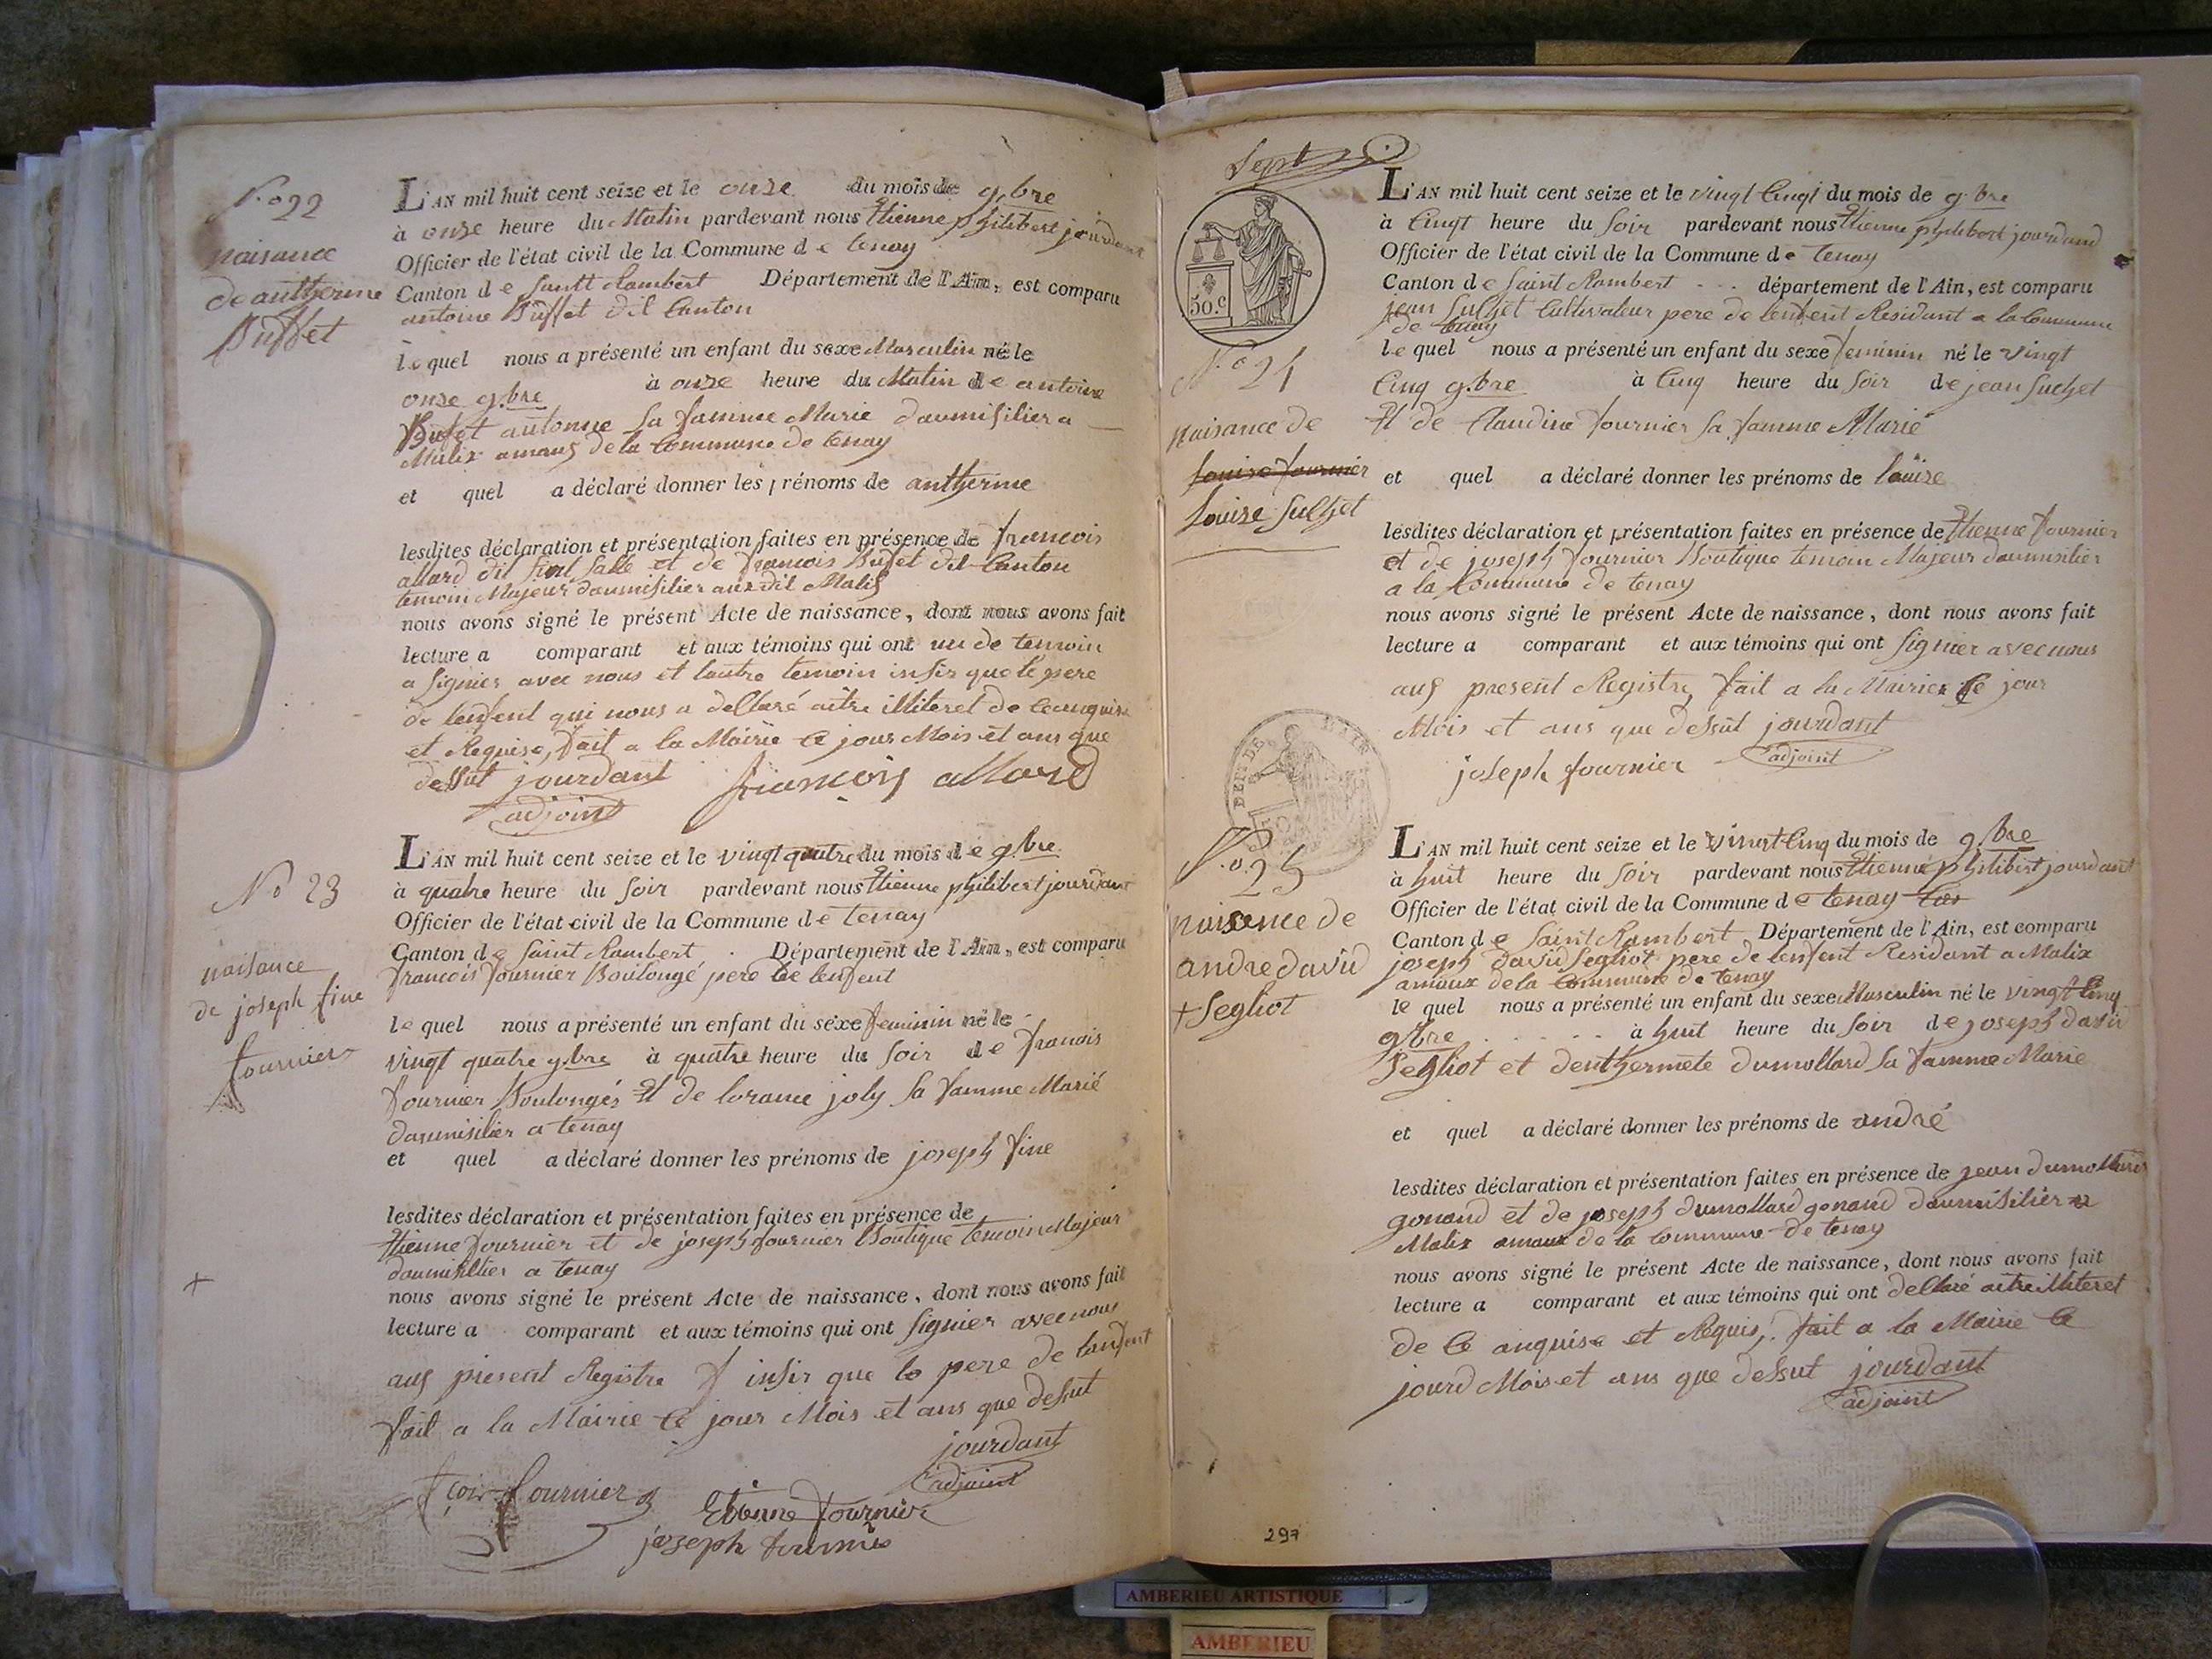 N.o 22
naisance
de antherme
Buffet
L'AN mil huit cent seize et le onze du mois de 9.bre
à onze heure du Matin pardevant nous Etienne philibert jourdant
Officier de l'état civil de la Commune de tenay
Canton de Saintt Rambert Département de l'Ain, est comparu
antoine Buffet dit Canton
le quel nous a présenté un enfant du sexe Masculin né le
onze 9.bre à onze heure du Matin de antoine
Bufet autonne sa famme Marie daumisilier a
Malix amaus de la Commune de tenay
et quel a déclaré donner les prénoms de antherme
lesdites déclaration et présentation faites en présence de francois
allard dit Salle et de francois Bufet dit Canton
temoin Majeur daumisilier au dit Malis
nous avons signé le présent Acte de naissance, dont nous avons fait
lecture a comparant et aux témoins qui ont un de temoin
a signier avec nous et lautre temoin insir que le pere
de lenfent qui nous a dellaré aitre illiteret de ce anquise
et Requise, fait a la Mairie Ce jour Mois et ans que
dessut jourdant francois allard
adjoint
No 23
naisance
de joseph fine
fournier
L'AN mil huit cent seize et le vingt quatre du mois de 9.bre
à quatre heure du soir pardevant nous Etienne philibert jourdant
Officier de l'état civil de la Commune de tenay
Canton de Saint Rambert . Département de l'Ain, est comparu
francois fournier Boulongé pere de lenfent
le quel nous a présenté un enfant du sexe feminin né le
vingt quatre 9.bre à quatre heure du soir de francois
fournier Boulongés Et de lorance joly sa famme Marié
daumisilier a tenay
et quel a déclaré donner les prénoms de joseph fine
lesdites déclaration et présentation faites en présence de
Etienne fournier et de joseph fournier Boutique temoin Majeur
daumisillier a tenay
+
nous avons signé le présent Acte de naissance, dont nous avons fait
lecture a comparant et aux témoins qui ont signier avec nous
aus present Registre insir que le pere de lanfent
fait a la Mairie Ce jour Mois et ans que dessut
jourdant
adjoint
fçois fournier
Etienne fournier
joseph fournier
Sept
50.c
N.o 24
naisance de
louise fournier
louise Suchet
L'AN mil huit cent seize et le vingt Cinqt du mois de 9.bre
à Cinqt heure du soir pardevant nous Etienne philibert jourdand
Officier de l'état civil de la Commune de tenay
Canton de Saint Rambert - - - département de l'Ain, est comparu
jean Suchet Cultivateur pere de lenfent Residant a la Commune
de tenay
le quel nous a présenté un enfant du sexe feminin né le vingt
Cinq 9.bre à Cinq heure du soir de jean Suchet
Et de Claudine fournier sa famme Marié
et quel a déclaré donner les prénoms de louise
lesdites déclaration et présentation faites en présence de Etienne fournier
et de joseph fournier Boutique temoin Majeur daumisilier
a la Commune de tenay
nous avons signé le présent Acte de naissance, dont nous avons fait
lecture a comparant et aux témoins qui ont signier avec nous
aus present Registre, fait a la Mairie Ce jour
Mois et ans que dessut jourdant
joseph fournier adjoint
N.o 25
naisence de
andre david
+ Segliot
L'AN mil huit cent seize et le vingt Cinq du mois de 9.bre
à huit heure du soir pardevant nous Etienne philibert jourdant
Officier de l'état civil de la Commune de tenay
Canton de Saint Rambert Département de l'Ain, est comparu
joseph david Segliot pere de lenfent Residant a Malix
amaux de la Commune de tenay
le quel nous a présenté un enfant du sexe Masculin né le vingt Cinq
9.bre - - - - - à huit heure du soir de joseph david
Segliot et denthermete dumollard sa famme Marie
et quel a déclaré donner les prénoms de andré
lesdites déclaration et présentation faites en présence de jean dumollard
gonand et de joseph dumollard gonand daumisilier a
Malix amaux de la Commune de tenay
nous avons signé le présent Acte de naissance, dont nous avons fait
lecture a comparant et aux témoins qui ont dellaré aitre illiteret
de Ce anquise et Requis, fait a la Mairie Ce
jourd Mois et ans que dessut jourdant
adjoint
297
AMBERIEU ARTISTIQUE
AMBERIEU